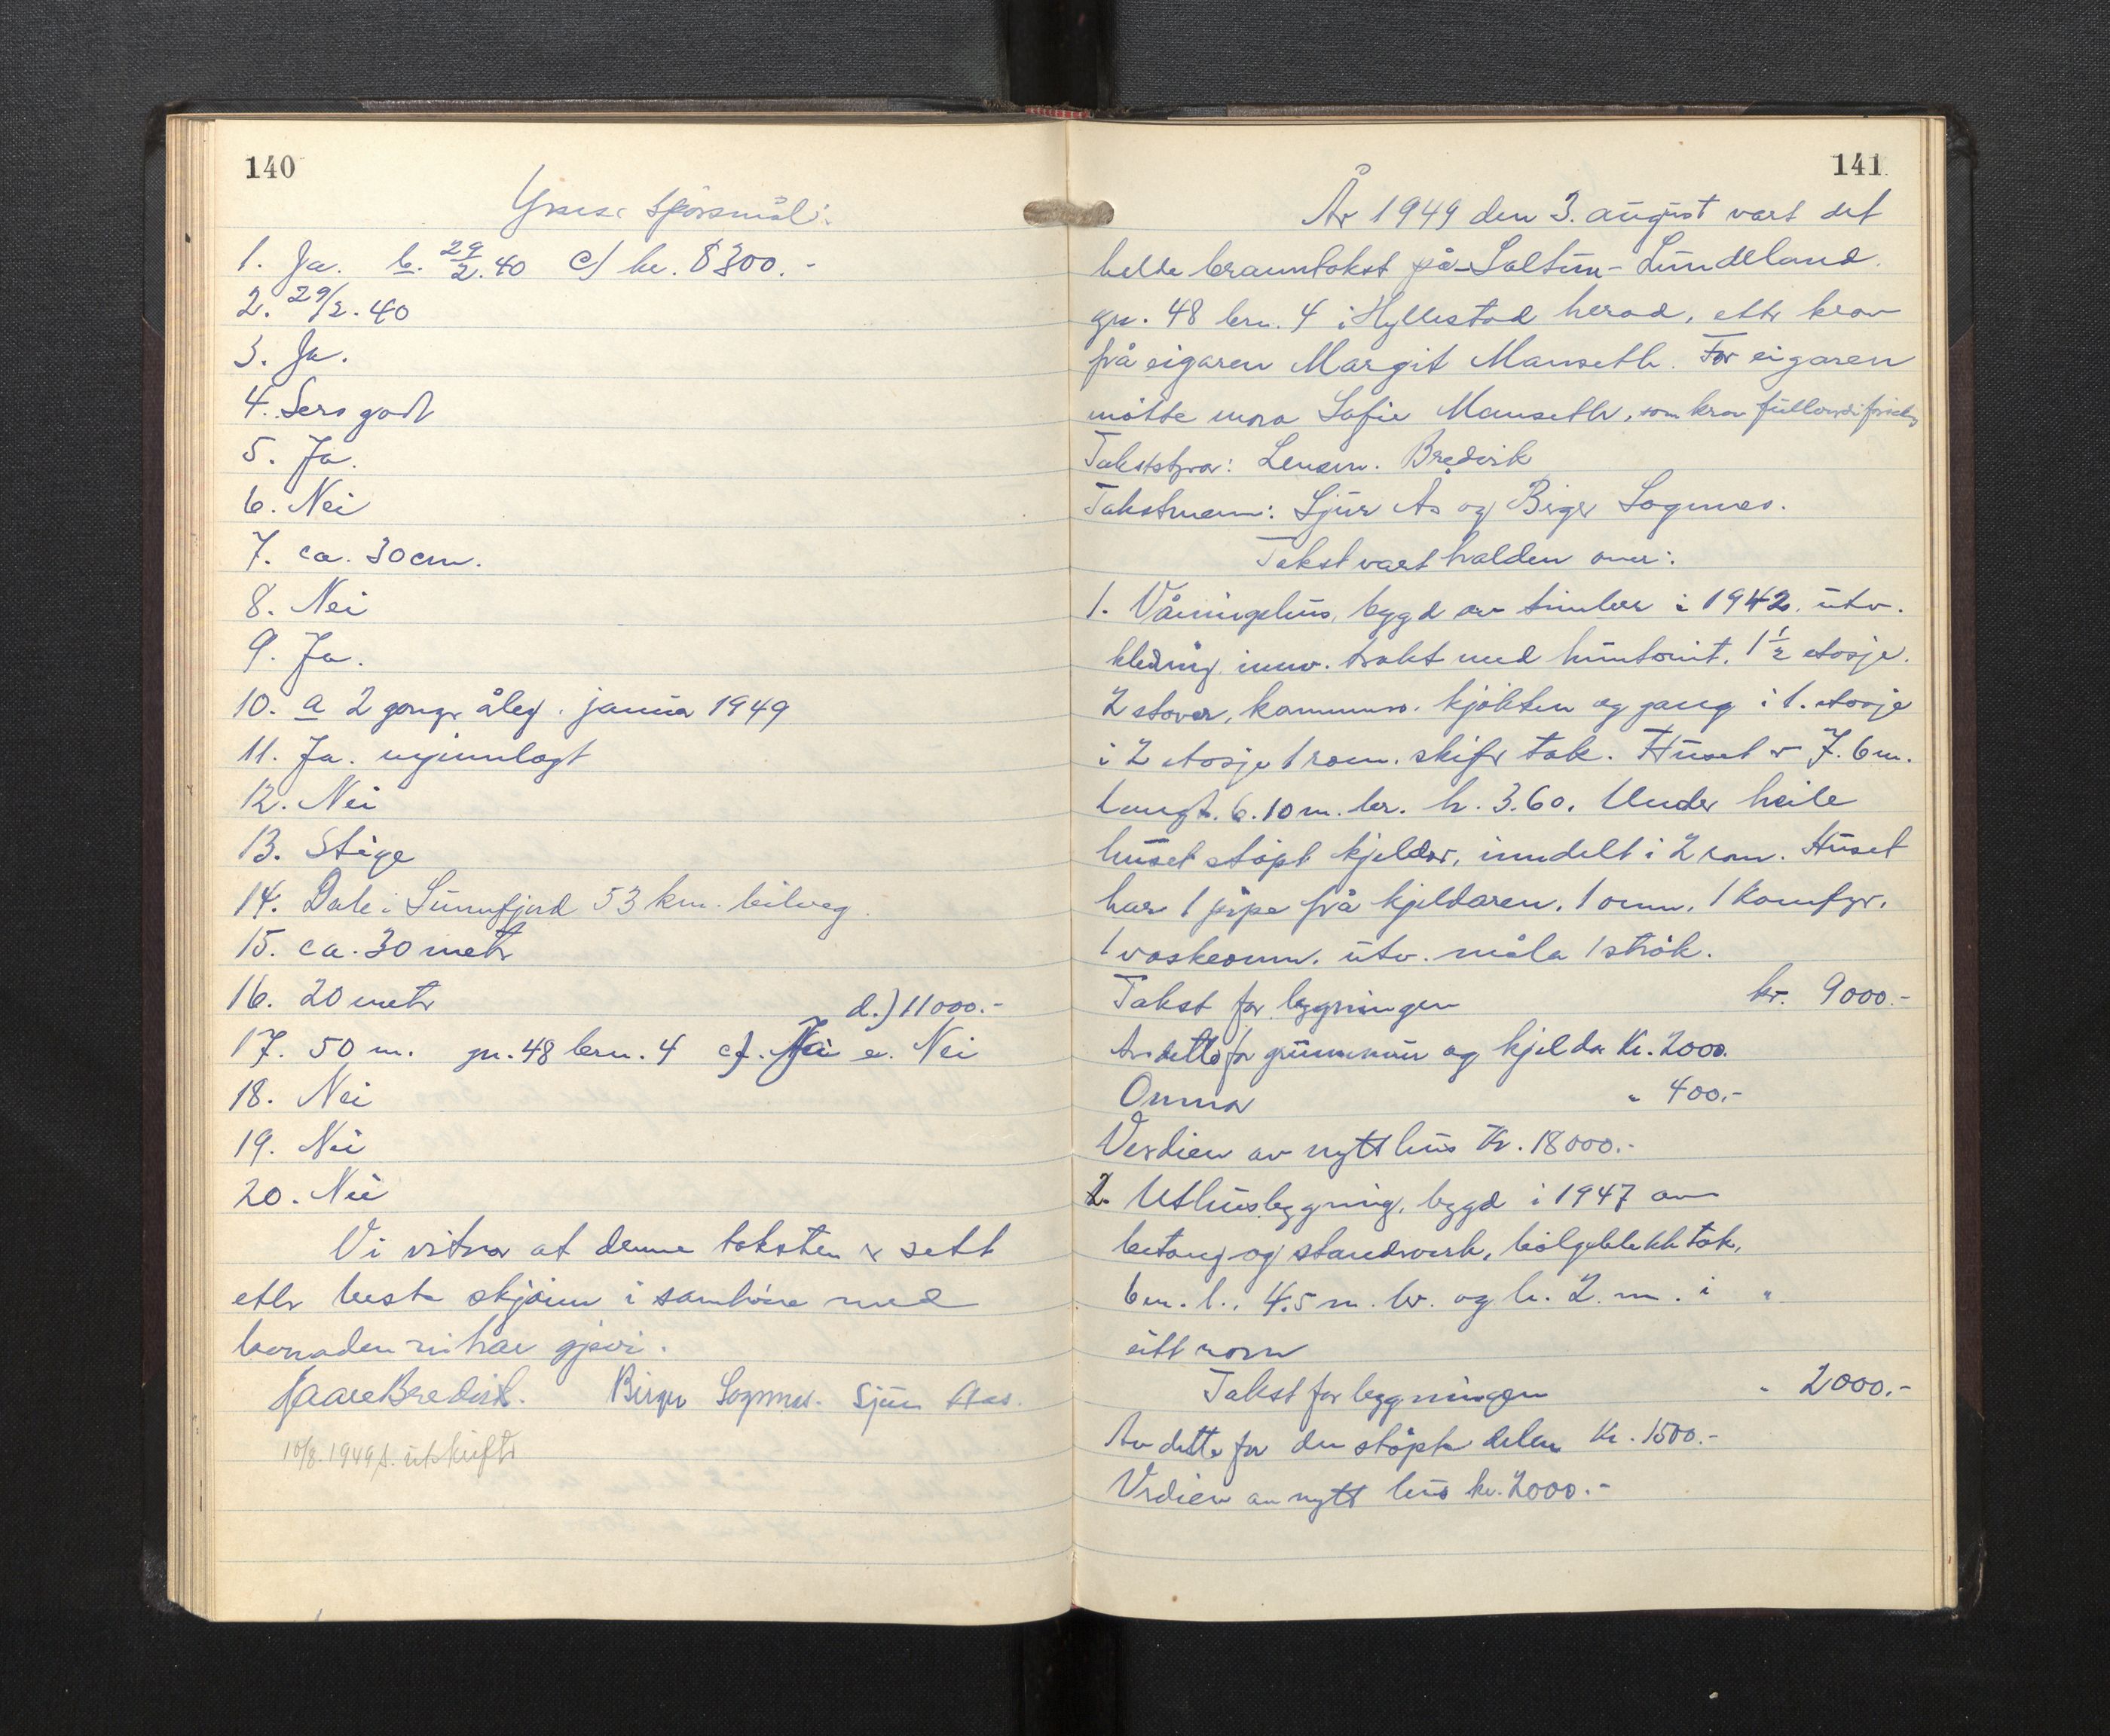 140
Ymse spörsmål:
1. Ja. b. 29/2.40 c/ kr. 8300.-
2. 29/2.40
3. Ja.
4. Sers godt
5. Ja.
6. Nei
7. ca. 30cm.
8. Nei
9. Ja.
10. a 2 gonger årleg. januar 1949
11. Ja. nyinnlagt
12. Nei
13. Stige
14. Dale i Sunnfjord 53 km. bilveg.
15. ca. 30 meter
16. 20 meter
d.) 11000.-
17. 50 m. gn. 48 brn. 4 c). Nei e. Nei
18. Nei
19. Nei
20. Nei
Vi vitnar at denne taksten er sett
etter beste skjönn i samhöve med
kunnaden vi har gjevi.
Kaare Bredvik. Birger Sognnes. Sjur Aas.
10/8.1949 s. utskrift
141
År 1949 den 3. august vart det
helde branntakst på Saltun - Lundeland.
gn. 48 brn. 4 i Hyllestad herad, etter krav
frå eigaren Margit Manseth. For eigaren
møtte mora Sofie Manseth, som krov fullverdiforsikr.
Takststyrar: Lensm. Bredvik
Takstmenn: Sjur Ås og Birger Sognnes.
Takst vart halden over:
1. Våningshus, bygd av timber i 1942. utv.
kledning innv. trekt med huntonit. 1 1/2 etasje.
2 stover, kammers. kjökken og gang i 1. etasje
i 2 etasje 1 rom. skifer tak. Huset er 7.6 m.
langt. 6.10 m. br. h. 3.60. Under heile
huset stöpt kjeldar, inndelt i 2 rom. Huset
har 1 pipe frå kjeldaren. 1 omn. 1 komfyr.
1 vaskeomn. utv. måla 1 strök.
Takst for bygningen kr. 9000.-
Av dette for grunnmur og kjeldar kr. 2000.
Omnar " 400.-
Verdien av nytt hus kr. 18000.-
2. Uthusbygning, bygd i 1947 av
betong og standverk, bölgeblekk tak,
6 m. l., 4.5 m. br. og h. 2 m. i "
eitt rom
Takst for bygningen " 2000.-
Av dette for den stöpte delen kr. 1500.-
Verdien av nytt hus kr. 2000.-